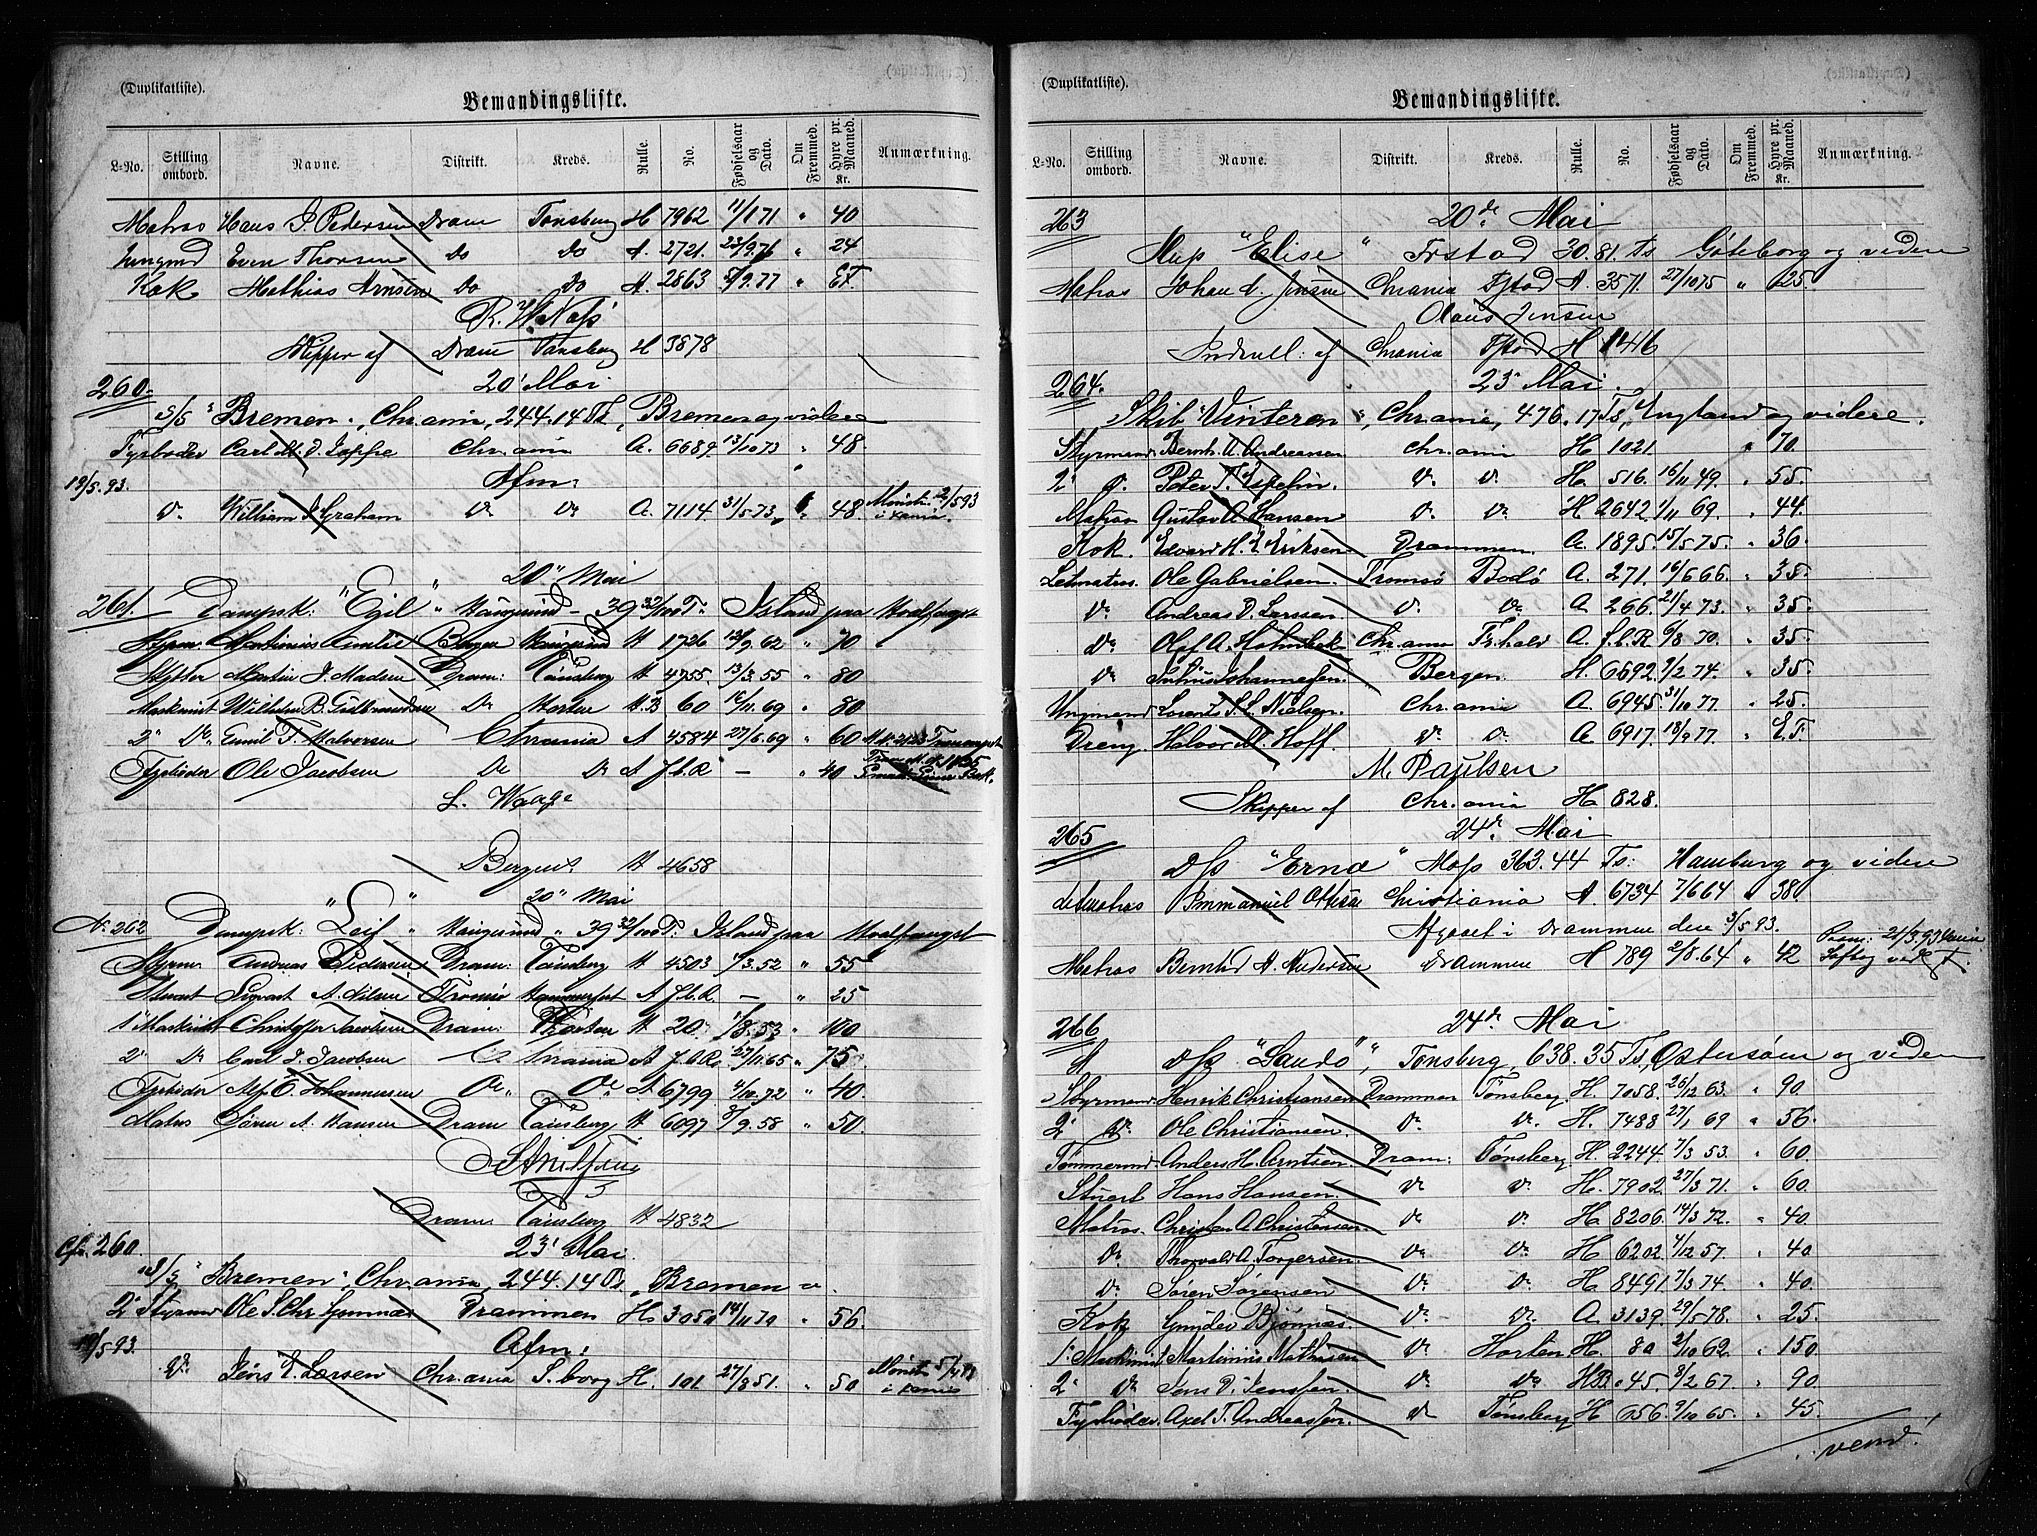 (Duplikatliste).
Bemandingsliste.
L-No. Stilling ombord. Navne. Distrikt. Kreds. Rulle. No. Fødselsaar og Dato. Om Fremmed. Hyre pr. Maaned. Kr. Anmærkning.
Matros Hans J. Pedersen Dram Tønsberg H 7962 1/1 71 " 40
Jungmd Even Thorsen Do Do A. 2721. 23/9.76 " 24
Kok Mathias Arnsen Do Do A. 2863 9.77 " EF
Skipper af Dram Tønsberg H 3878
260. 20' Mai
S/S "Bremen", Chr.ania, 244.14 Ts, Bremen og videre
Fyrbøder Carl M. J. Jappe Chr.ania A. 6689 13/10 73 " 48
19/5.93. Afm.
Do William J. Graham Do Do A. 7114. 31/5.73 " 48
20" Mai
261. Dampsk: "Egil" Haugesund 39 32/100 T: Island paa Hvalfangst
Styrm. Martinius Bergen Haugesund H 1726 9.62 " 70
Skytter Martin J. Madsen Dram: Tønsberg H 4755. 13/3.55 " 80
Maskinist Wilhelm B. Gulbrandsen Do Horten H.B 60 11.69 " 80
2" Do Emil F. Halvorsen Chrania A 4584 27/6.69 " 60
Fyrbøder Ole Jacobsen Do Do A f.l.R — " 40
L. Waage
Bergens H 4658
20" Mai
No 262 Dampsk: "Leif" Haugesund 39 32/100 T: Island paa Hvalfangst
Styrm. Andreas Pedersen Dram: Tønsberg H 4503 3.52 " 55
Stuert Sigvart A. Nilsen Tromsø Hammerfest A f.l.R. — " 25
1" Maskinist Christoffer Jacobsen Dram: Horten H 20 1/8.53 " 100
2" Do Carl J. Jacobsen Chrania A f.l.R. 27/11.65 " 75
Fyrbøder Alf E. Johannessen Do Do A 6799 72 " 40
Matros Søren A. Hansen Dram Tønsberg H 6097 9.58 " 50
Dram Tønsberg H 4832
Cfr. 260. 23' Mai
S/S "Bremen", Chr.ania, 244.14 Ts, Bremen
2' Styrmd Ole S. Chr. Drammen H. 3050 14/11 70 " 56.
19/5 93. Afm:
Do Jens E. Larsen Chr.ania S.borg H. 101. 27/8 51. " 50
(Duplikatliste).
Bemandingsliste.
L-No. Stilling ombord. Navne. Distrikt. Kreds. Rulle. No. Fødselsaar og Dato. Om Fremmed. Hyre pr. Maaned. Kr. Anmærkning.
263 20de Mai
"Elise" Frstad 30.81 Ts Gøteborg og videre
Matros Johan A. Jensen Chrania Fstad A. 3571. 27/10 75 " 25.
Olaus Jensen
af Chrania Fstad H 1446
264. 23' Mai.
Skib "Vinteren", Chr.ania, 476.17 Ts, England og videre.
Styrmand Bernh. A. Andreasen Chr.ania H. 1021. " 70.
2' Do Peter T. Do Do H. 516. 16/11 49. " 55.
Matros Gustav A. Hansen Do Do H 2642 1/11 69. " 44.
Kok. Edvard H. E. Eriksen Drammen. A. 1895. 15/5 75. " 36.
Letmatros. Ole Gabrielsen. Tromsø Bodø A. 271. 16/6 66. " 35.
Do Andreas D. Larssen Do Do A 266. 21/4 73. " 35.
Do Olof A. Holmbek Chr.ania Fr.hald A. f.l.R. 6/8 70. " 35.
Do Johannesen. Bergen H. 6692. 2 74. " 35.
Ungmand Lorents S. L. Nielsen. Chr.ania A. 6945. 31/10 77. " 25.
Dreng. Halvor M. Hoff. Do Do A 6917. 18/9 77. " E.F
M. Paulsen
Skipper af Chr.ania H 828.
265 24de Mai
D/s "Erna" Moss 363.44 Ts: Hamburg og videre
Letmatros Emmanuel Ottesen Christiania A 6734 7/6 64 " 38.
Afgaaet i Drammen den 3/5 93.
Matros Bernhd A. Andersen Drammen H 789 2/8.64 " 42
266 24de Mai
D/s "Sandø", Tønsberg, 638.35 Ts, Østersøen og videre
Styrmand Henrik Christiansen Drammen Tønsberg H. 7058. 26/12 63. " 90.
2' Do Ole Christiansen. Do Do H. 7488 27/1 69 " 56.
Tømmermd Anders H. Arntsen. Dram: Tønsberg H. 2244. 7/3 53. " 60.
Stuert Hans Hansen. Do Do H. 7902. 27/3 71. " 60.
Matros. Christen A. Christensen. Do Do H 8206. 14/3 72. " 40.
Do Thorvald A. Torgersen. Do Do H 6202 4/12 57. " 40
Do Søren Sørensen Do Do H 8491. 7/3 74. " 40.
Kok Gunder Bjønnes. Do Do A. 3139. 29/5 78. " 25.
1' Maskinist Martinius Mathisen Do Horten H. 80 2/10 62. " 150.
2' Do Jens D. Jenssen. Do Do HB. 45. 8/2 67. " 90.
Fyrbøder. Axel T. Andreassen. Do Tønsberg H 656. 9/10 65. " 45.
vend.